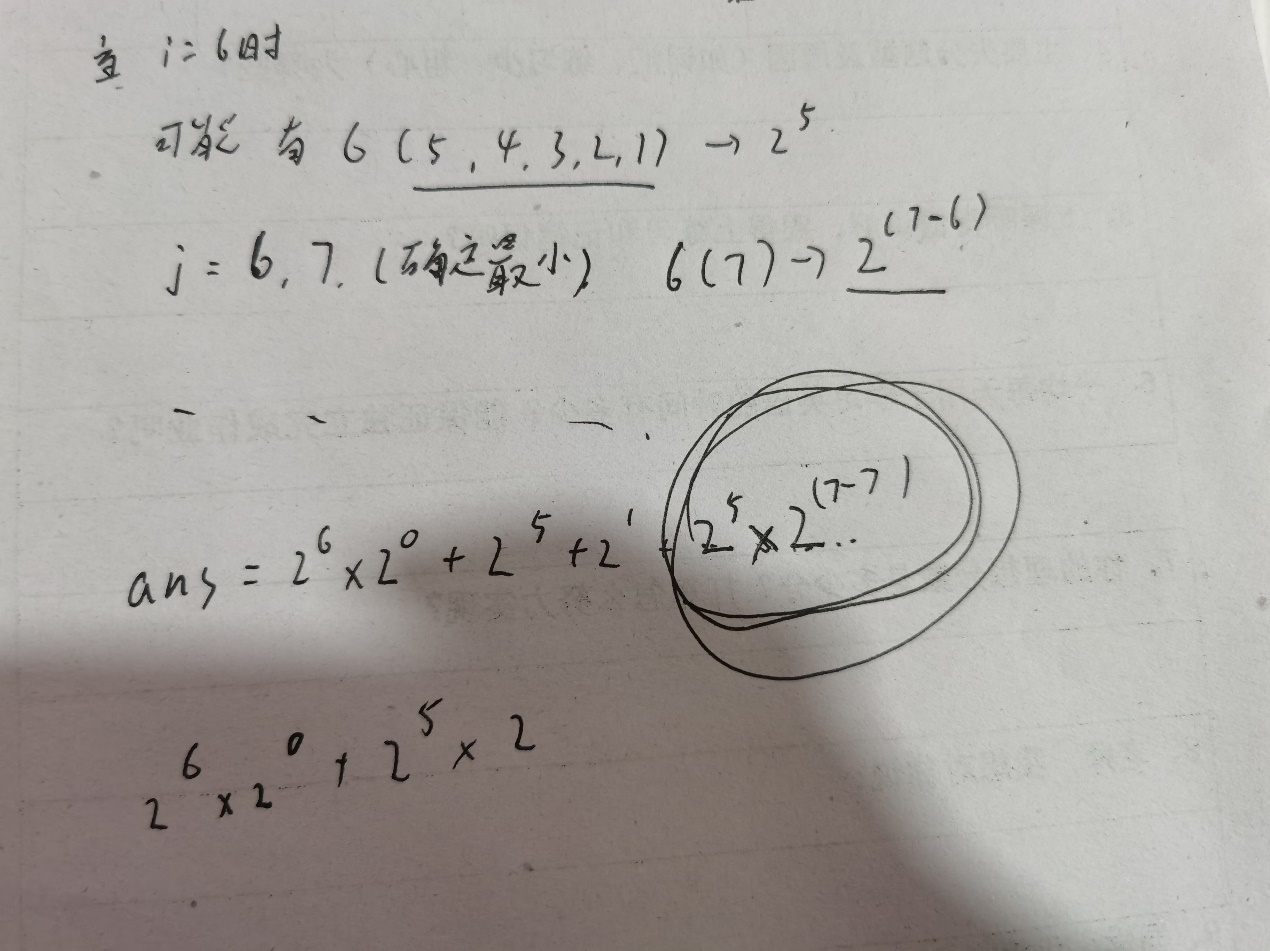 i=6时
可能有 6 (5,4,3,2,1) → 2^5
j = 6,7. (确定最小) 6(7) → 2^(7-6)
ans = 2^6 × 2^0 + 2^5 + 2^1 + 2^5 × 2^(7-7) ..
2^6 × 2^0 + 2^5 × 2